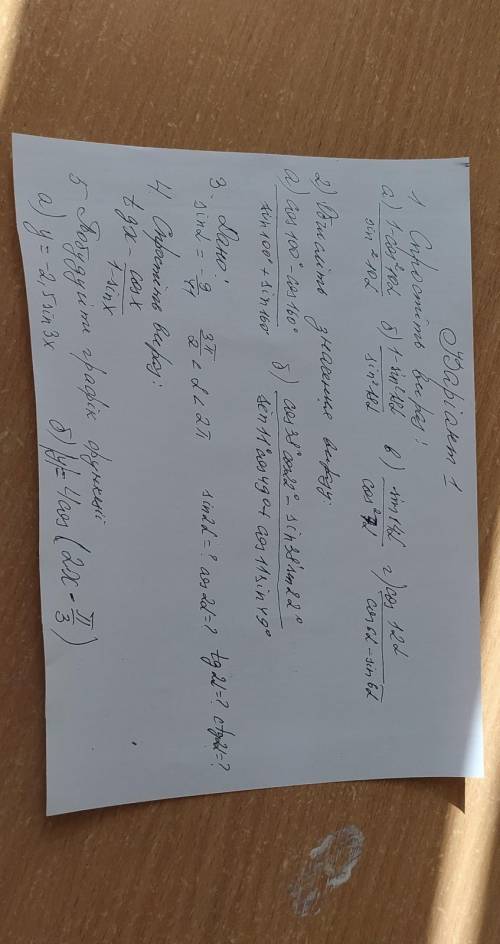 Варіант 1
1 Спростіть вираз:
а) 1-cos²10α / sin²10α б) 1-sin²11α / sin²11α в) sin14α / cos²7α г) cos 12α / cos6α-sin6α
2) Обчисліть значення виразу:
а) cos100°-cos160° / sin100°+sin160° б) cos38°cos22°-sin38°sin22° / sin11°cos49°+cos11°sin49°
3. Дано:
sinα = -9/41 3π/2 < α < 2π sin2α=? cos2α=? tg2α=? ctg2α=?
4) Спростіть вираз:
tgx - cosx / 1-sinx
5 Побудуйте графік функції
а) y = -2,5sin3x б) |y|=4cos(2x - π/3)